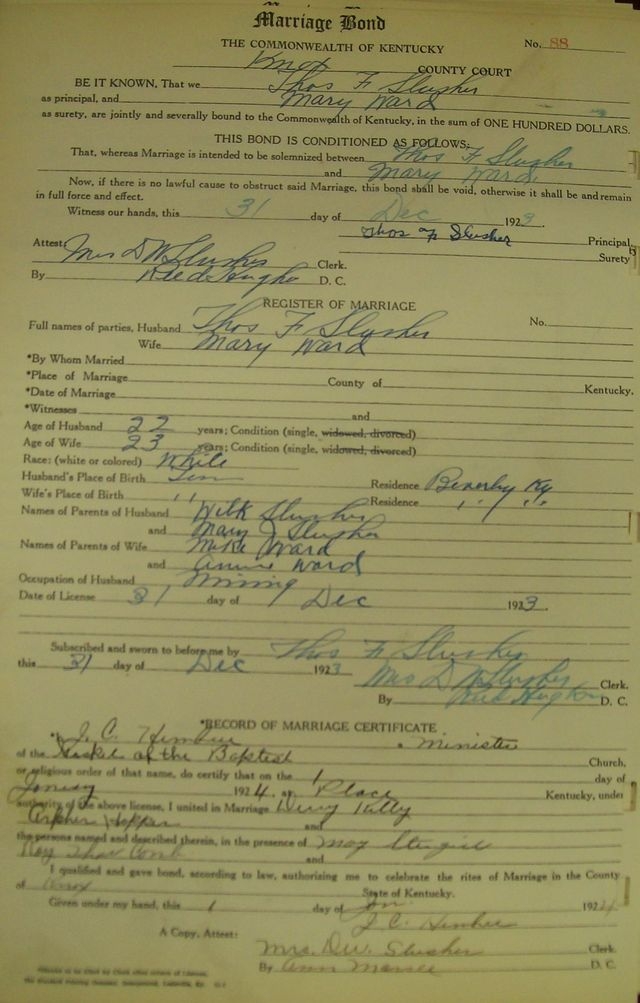 Marriage Bond
THE COMMONWEALTH OF KENTUCKY No. 88
Knox COUNTY COURT
BE IT KNOWN, That we Thos F Slusher
as principal, and Mary Ward
as surety, are jointly and severally bound to the Commonwealth of Kentucky, in the sum of ONE HUNDRED DOLLARS.
THIS BOND IS CONDITIONED AS FOLLOWS:
That, whereas Marriage is intended to be solemnized between Thos F Slusher
and Mary Ward
Now, if there is no lawful cause to obstruct said Marriage, this bond shall be void, otherwise it shall be and remain
in full force and effect.
Witness our hands, this 31 day of Dec 1923.
Thos F Slusher Principal
Surety
Attest: Mrs D W Slusher Clerk.
By D. C.
REGISTER OF MARRIAGE
Full names of parties, Husband Thos F Slusher No.
Wife Mary Ward
*By Whom Married
*Place of Marriage County of Kentucky.
*Date of Marriage
*Witnesses and
Age of Husband 22 years; Condition (single, widowed, divorced)
Age of Wife 23 years; Condition (single, widowed, divorced)
Race: (white or colored) White
Husband's Place of Birth Residence Beverly Ky
Wife's Place of Birth " Residence " "
Names of Parents of Husband Slusher
and Mary J Slusher
Names of Parents of Wife Mike Ward
and Annie Ward
Occupation of Husband Mining
Date of License 31 day of Dec 1923.
Subscribed and sworn to before me by Thos F Slusher
this 31 day of Dec 1923 Mrs D W Slusher Clerk.
By D. C.
*RECORD OF MARRIAGE CERTIFICATE
*I, J. C. a Minister
of the of the Baptest Church,
or religious order of that name, do certify that on the 1 day of
1924. at Place Kentucky, under
authority of the above license, I united in Marriage
and
the persons named and described therein, in the presence of
and
I qualified and gave bond, according to law, authorizing me to celebrate the rites of Marriage in the County
of Knox State of Kentucky.
Given under my hand, this 1 day of Jan 1924
J C
A Copy, Attest:
Mrs. D.W. Slusher Clerk.
By Ann D. C.